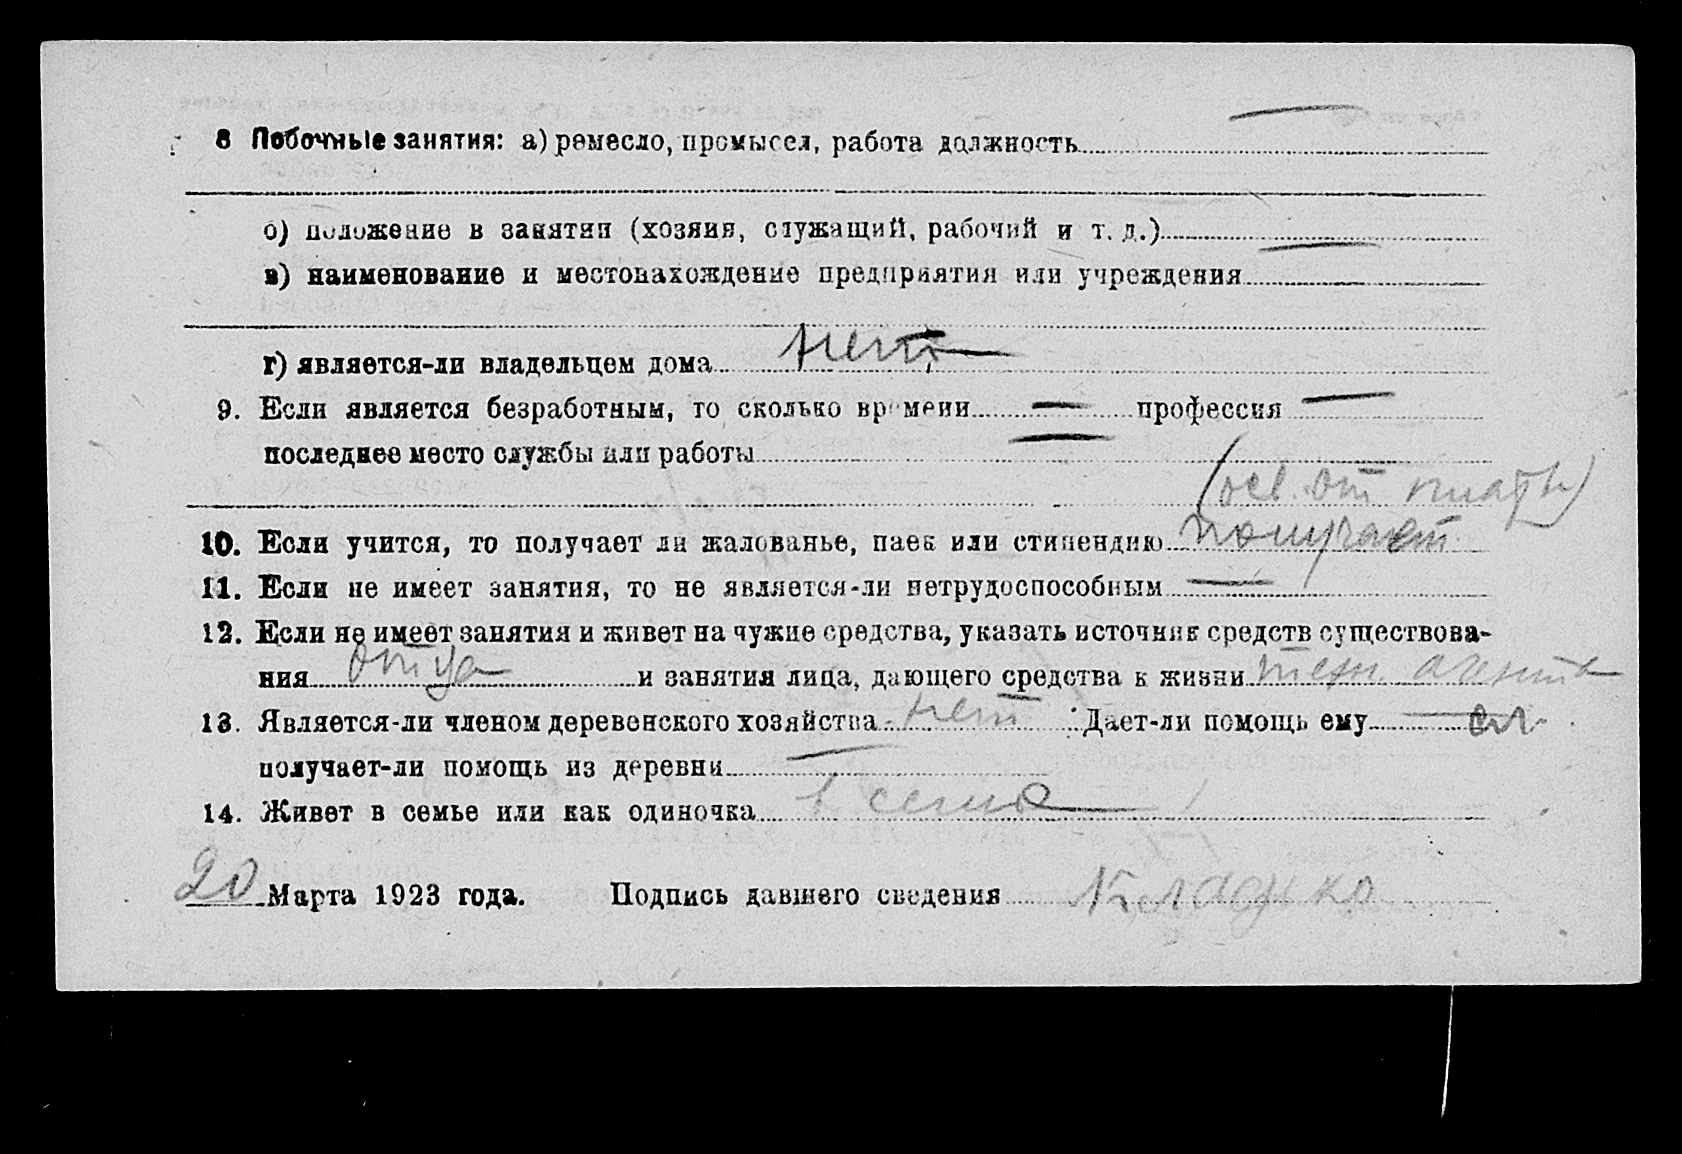 8 Побочные занятия: а) ремесло, промысел, работа должность —
б) положение в занятии (хозяин, служащий, рабочий и т. д.) —
в) наименование и местонахождение предприятия или учреждения
г) является-ли владельцем дома нет
9. Если является безработным, то сколько времени — профессия —
последнее место службы или работы —
(осв. от платы)
10. Если учится, то получает ли жалованье, паек или стипендию получает
11. Если не имеет занятия, то не является-ли нетрудоспособным —
12. Если не имеет занятия и живет на чужие средства, указать источник средств существова-
ния отца и занятия лица, дающего средства к жизни техн. агент
13. Является-ли членом деревенского хозяйства нет Дает-ли помощь ему —
получает-ли помощь из деревни —
14. Живет в семье или как одиночка в семье
20 Марта 1923 года. Подпись давшего сведения